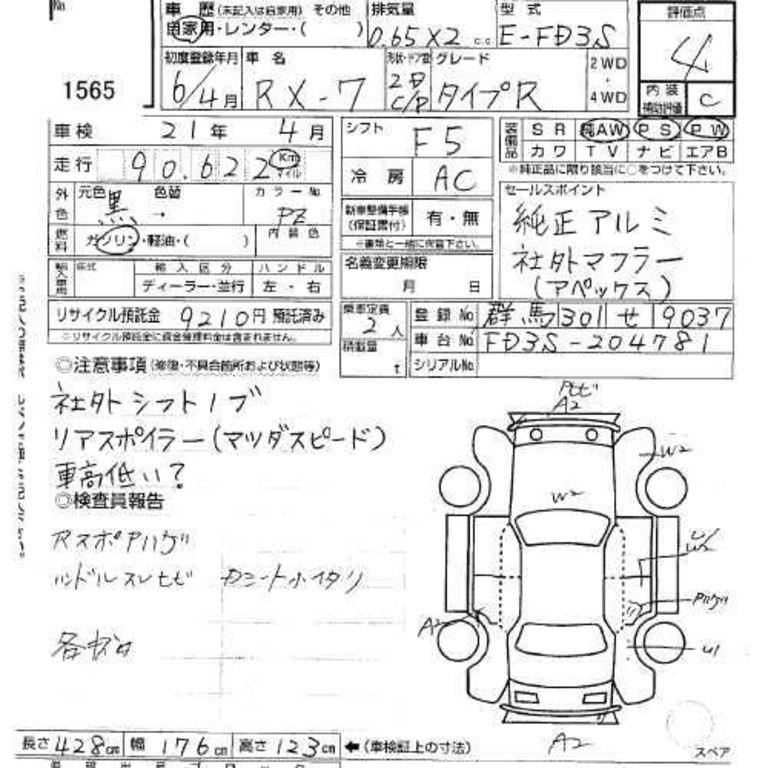 No.
車歴 (未記入は自家用) その他 排気量 型式 評価点
自家用・レンター・( ) 0.65×2 c.c E-FD3S 4
1565
初度登録年月 車名 形状・ドア数 グレード 2WD
6/4月 RX-7 2D C/P タイプR ・4WD
内装補助評価 C
車検 21年 4月 シフト F5 装備品 SR 純AW PS PW
カワ TV ナビ エアB
※純正品に限り該当に○をつけて下さい。
走行 90,622 Km マイル 冷房 AC
外色 元色 黒 → 色替 カラーNo. PZ
セールスポイント
純正アルミ
社外マフラー
(アペックス)
新車整備手帳(保証書付) 有・無
※書類と一緒に保管下さい。
燃料 ガソリン・軽油・( ) 内装色
輸入車 年式 輸入区分 ハンドル
ディーラー・並行 左・右
名義変更期限
月 日
リサイクル預託金 9210円 預託済み
※リサイクル預託金に資金管理料金は含まれません。
乗車定員 2人 登録No. 群馬 301 せ 9037
積載量 t 車台No. FD3S-204781
シリアルNo.
◎注意事項(修復・不具合箇所および状態等)
社外シフトノブ
リアスポイラー(マツダスピード)
車高低い?
◎検査員報告
ハンドルスレ
A2
W2
W2
A2
U1
A2
長さ428cm 幅176cm 高さ123cm ←(車検証上の寸法)
スペア